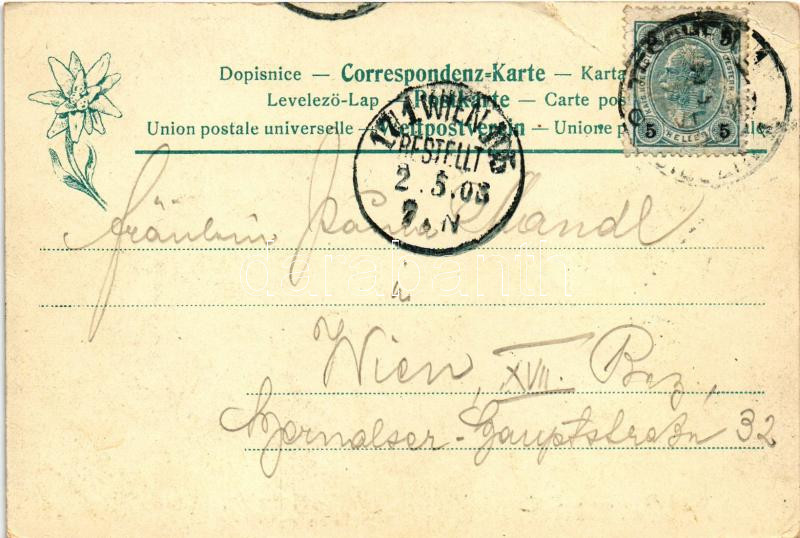 Dopisnice — Correspondenz-Karte — Karta
Levelezö-Lap — Postkarte — Carte pos
Union postale universelle — Weltpostverein — Unione p
5 HELLER 5
17/1 WIEN
BESTELLT
2.5.03
N
Fräulein
Wien, XVII. Bez.,
Hernalser-Hauptstraße 32
darabanth